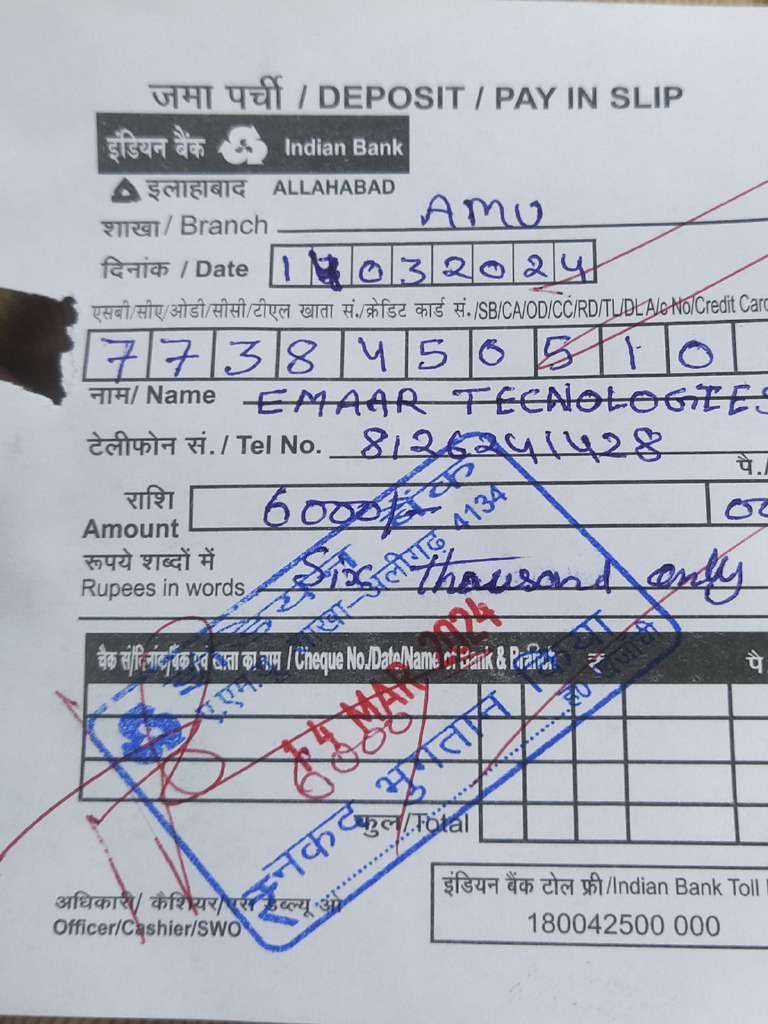 जमा पर्ची / DEPOSIT / PAY IN SLIP
इंडियन बैंक Indian Bank
इलाहाबाद ALLAHABAD
शाखा / Branch AMU
दिनांक / Date 1 4 0 3 2 0 2 4
एसबी/सीए/ओडी/सीसी/टीएल खाता सं./क्रेडिट कार्ड सं./SB/CA/OD/CC/RD/TL/DL A/c No/Credit Card
7 7 3 8 4 5 0 5 1 0
नाम/ Name EMAAR TECNOLOGIES
टेलीफोन सं. / Tel No. 8126241428
पै./
राशि
Amount 6000/- 00
रूपये शब्दों में
Rupees in words Six thousand only
चैक सं/दिनांक/बैंक एवं शाखा का नाम / Cheque No./Date/Name of Bank & Branch ₹ पै.
इंडियन बैंक
ए.एम.यू. शाखा-अलीगढ़ 4134
14 MAR 2024
6000
नकद भुगतान किया
ह0 खजांची
कुल/Total
अधिकारी/ कैशियर/एस डब्ल्यू ओ
Officer/Cashier/SWO
इंडियन बैंक टोल फ्री/Indian Bank Toll
180042500 000